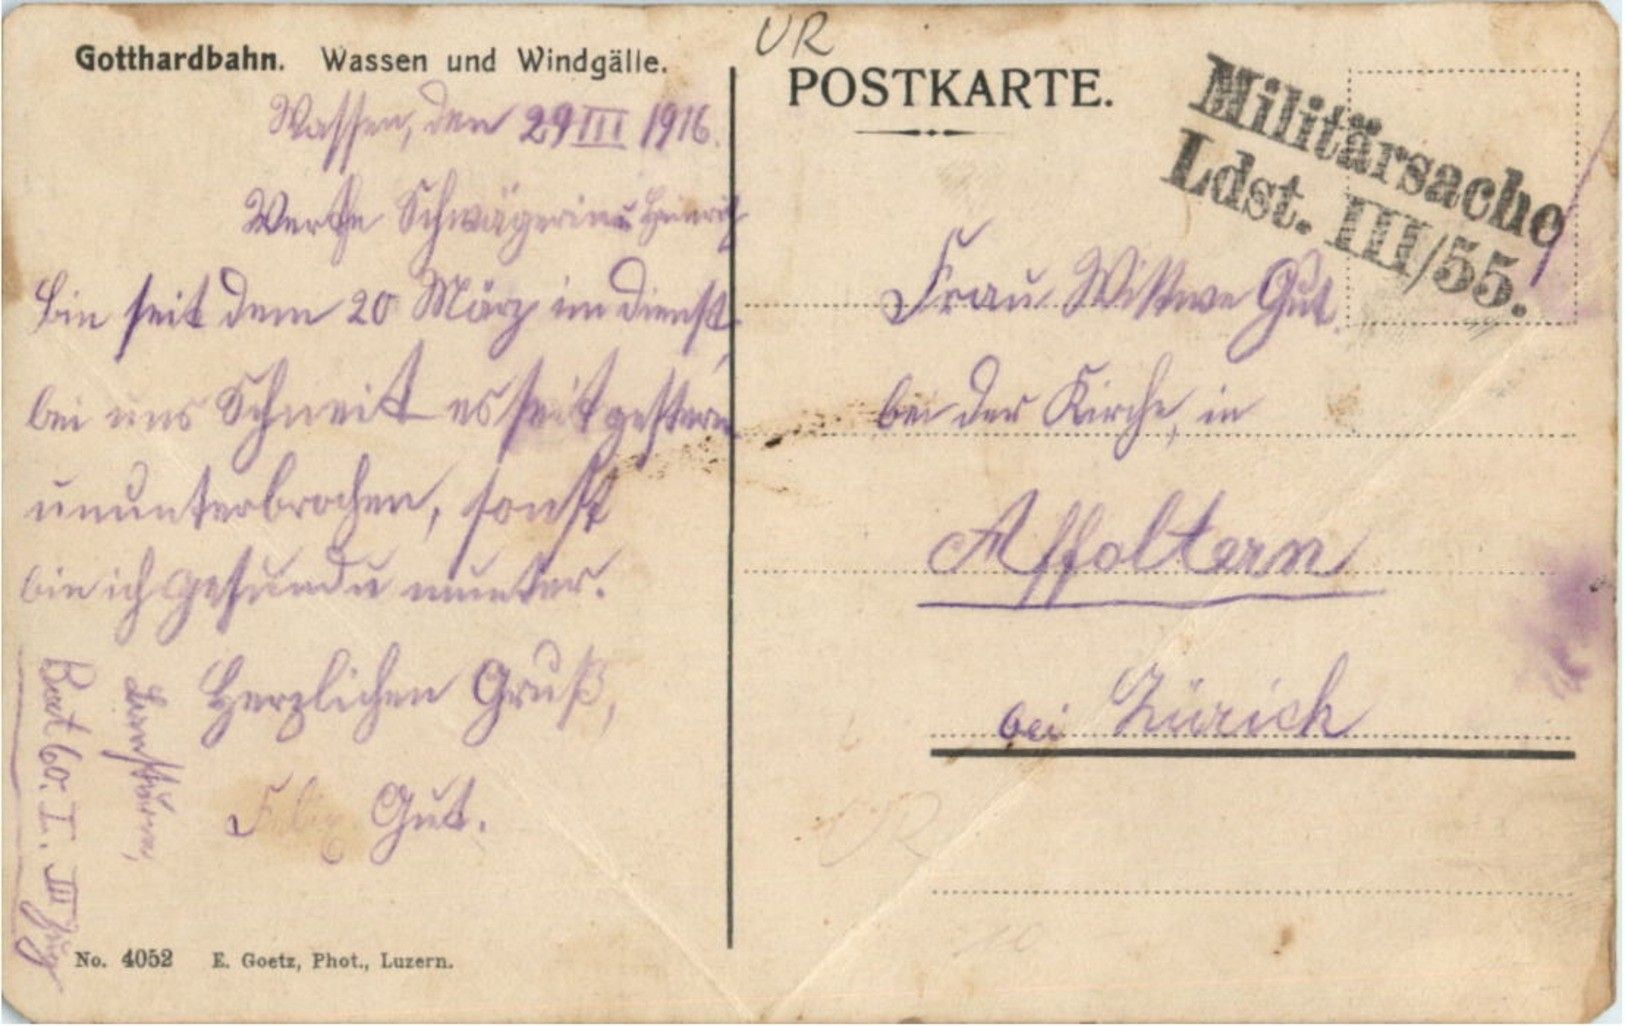 Gotthardbahn. Wassen und Windgälle.
Wassen, den 29 III 1916.
Werthe Schwägerin u Heinrich
bin seit dem 20 März im dienst,
bei uns Schneit es seit gestern
ununterbrochen, sonst
bin ich gesund u munter.
Herzlichen Gruß,
Felix Gut.
Landsturm,
Bat 60. I. III Zug
No. 4052 E. Goetz, Phot., Luzern.
UR
POSTKARTE.
Militärsache
Ldst. III/55.
Frau Wittwe Gut.
bei der Kirche, in
Affoltern
bei Zürich
UR